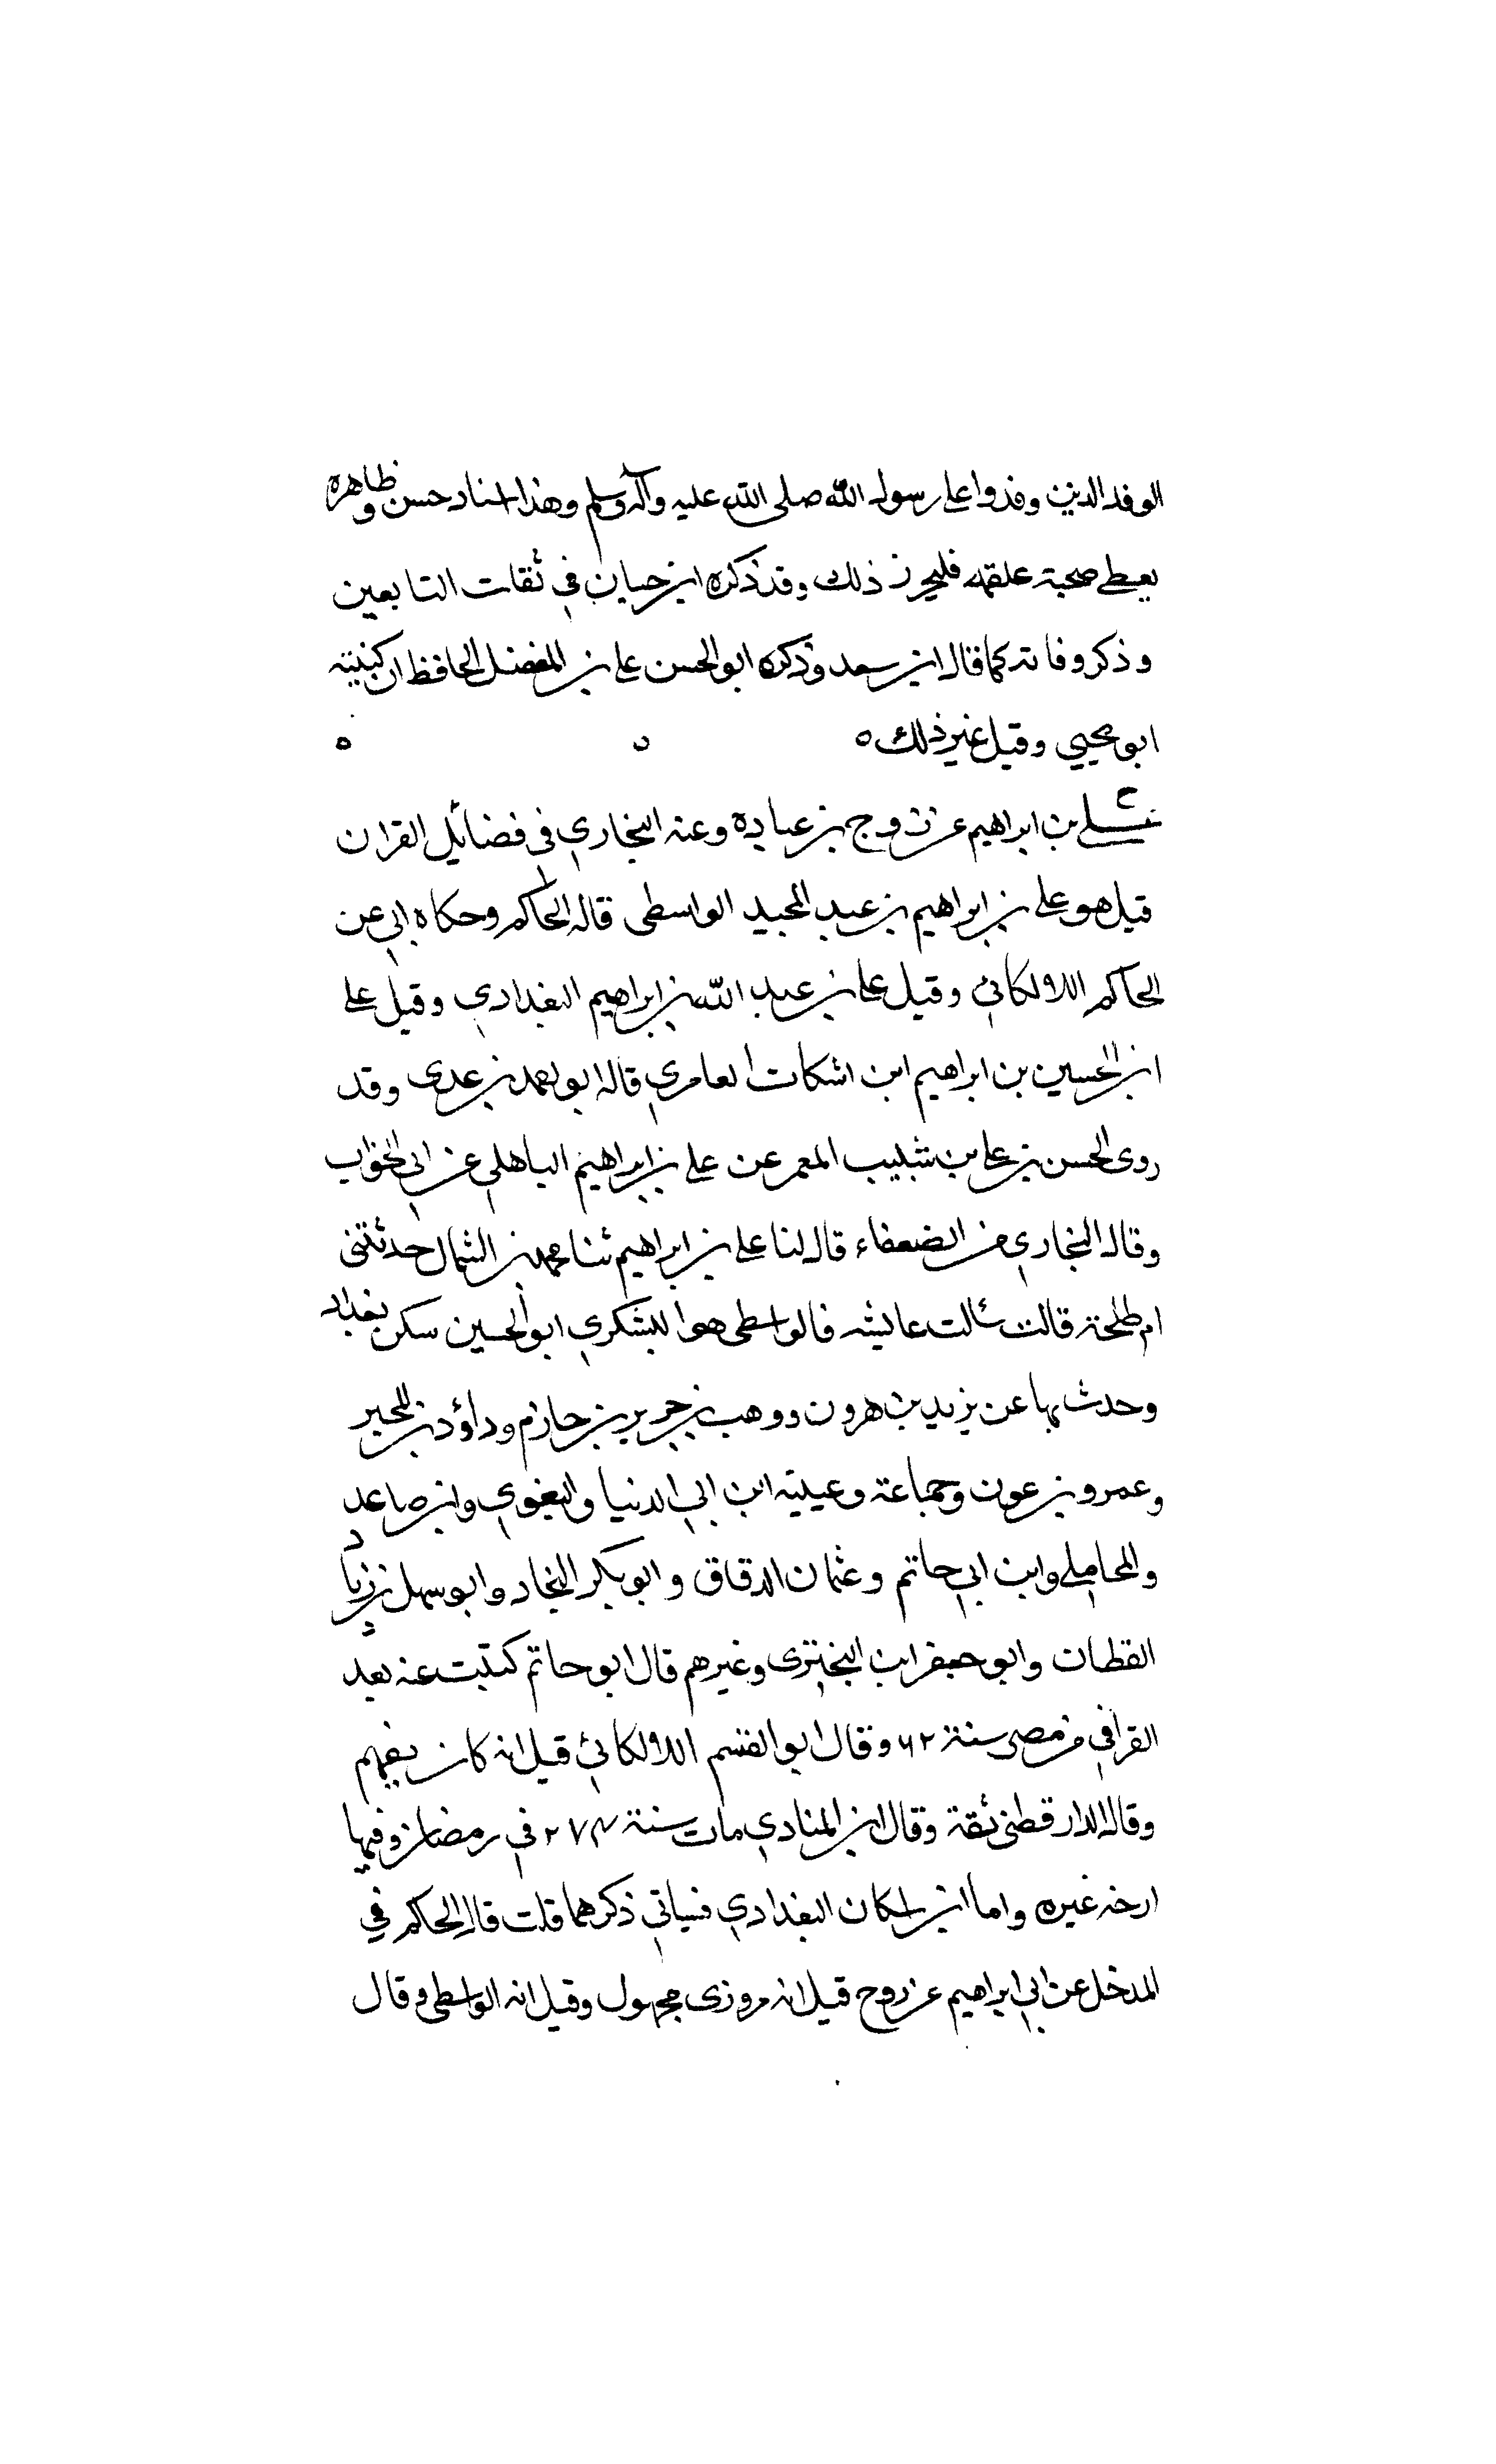 الوفد الذين وفدوا على رسول الله صلى الله عليه وآله وسلم وهذا اسناد حسن وظاهره
يعطي صحبة علقمه فليحرر ذلك وقد ذكره ابن حبان في ثقات التابعين
وذكر وفاته كما قال ابن سعد وذكره ابو الحسن علي بن المفضل الحافظ ان كنيته
ابو يحيي وقيل غير ذلك ه ه
علي بن ابراهيم عن روح بن عباده وعنه البخاري في فضائل القران
قيل هو علي بن ابراهيم بن عبد المجيد الواسطى قاله الحاكم وحكاه ابي عن
الحاكم اللالكائي وقيل علي بن عبد الله بن ابراهيم البغدادي وقيل علي
ابن الحسين بن ابراهيم ابن اشكات العامري قاله ابو احمد بن عدى وقد
روى الحسن بن علي بن شبيب المعمر عن علي بن ابراهيم الباهلي عن ابي الجواب
وقال البخاري في الضعفاء قال لنا علي بن ابراهيم ثنا محمد بن الشمال حدثتنى
ام طلحة قالت سألت عايشه فالواسطى هو اليشكري ابو الحسين سكن بغداد
وحدث بها عن يزيد بن هرون ووهب بن جرير بن حازم وداؤد بن المحبر
وعمرو بن عون وجماعة وعينه ابن ابي الدنيا والبغوي وابن صاعد
والمحاملي وابن ابي حاتم وعثمان الدقاق وابو بكر النجاد وابو سهل بن زياد
القطان وابو جعفر ابن البخترى وغيرهم قال ابو حاتم كتبت عنه بعد
القرافي من مصر سنة ٦٢ وقال ابو القسم اللالكائي قيل انه كان يفهم
وقال الدارقطنى ثقة وقال ابن المنادي مات سنة ٢٧٤ في رمضان وفيها
ارخه غيره واما ابن اشكان البغدادي فسياتي ذكرهما قلت قال الحاكم في
المدخل عن ابي ابراهيم عن روح قيل انه مروزى مجهول وقيل انه الواسطى وقال